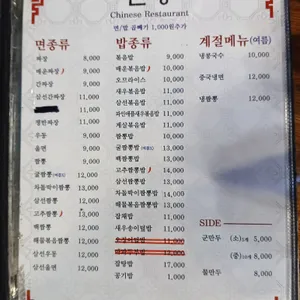 Chinese Restaurant
면/밥 곱빼기 1,000원추가
면종류
짜장 8,000
매운짜장 9,000
간짜장 9,000
삼선간짜장 11,000
11,000
쟁반짜장 11,000
우동 9,000
울면 9,000
짬뽕 9,000
굴짬뽕 12,000
차돌박이짬뽕 13,000
삼선짬뽕 12,000
고추짬뽕 13,000
백짬뽕 12,000
해물볶음짬뽕 12,000
삼선우동 12,000
삼선울면 12,000
밥종류
볶음밥 9,000
매운볶음밥 10,000
오므라이스 10,000
새우볶음밥 10,000
삼선볶음밥 11,000
파인애플새우볶음밥 11,000
제육볶음밥 11,000
짬뽕밥 10,000
굴짬뽕밥 13,000
백짬뽕밥 13,000
고추짬뽕밥 14,000
삼선짬뽕밥 13,000
차돌박이짬뽕밥 14,000
해물볶음짬뽕밥 13,000
잡채밥 11,000
새우송이덮밥 11,000
11,000
잡탕밥 17,000
공기밥 1,000
계절메뉴(여름)
냉콩국수 10,000
중국냉면 12,000
냉짬뽕 12,000
SIDE
군만두 (소)5개 5,000
(중) 8,000
물만두 8,000